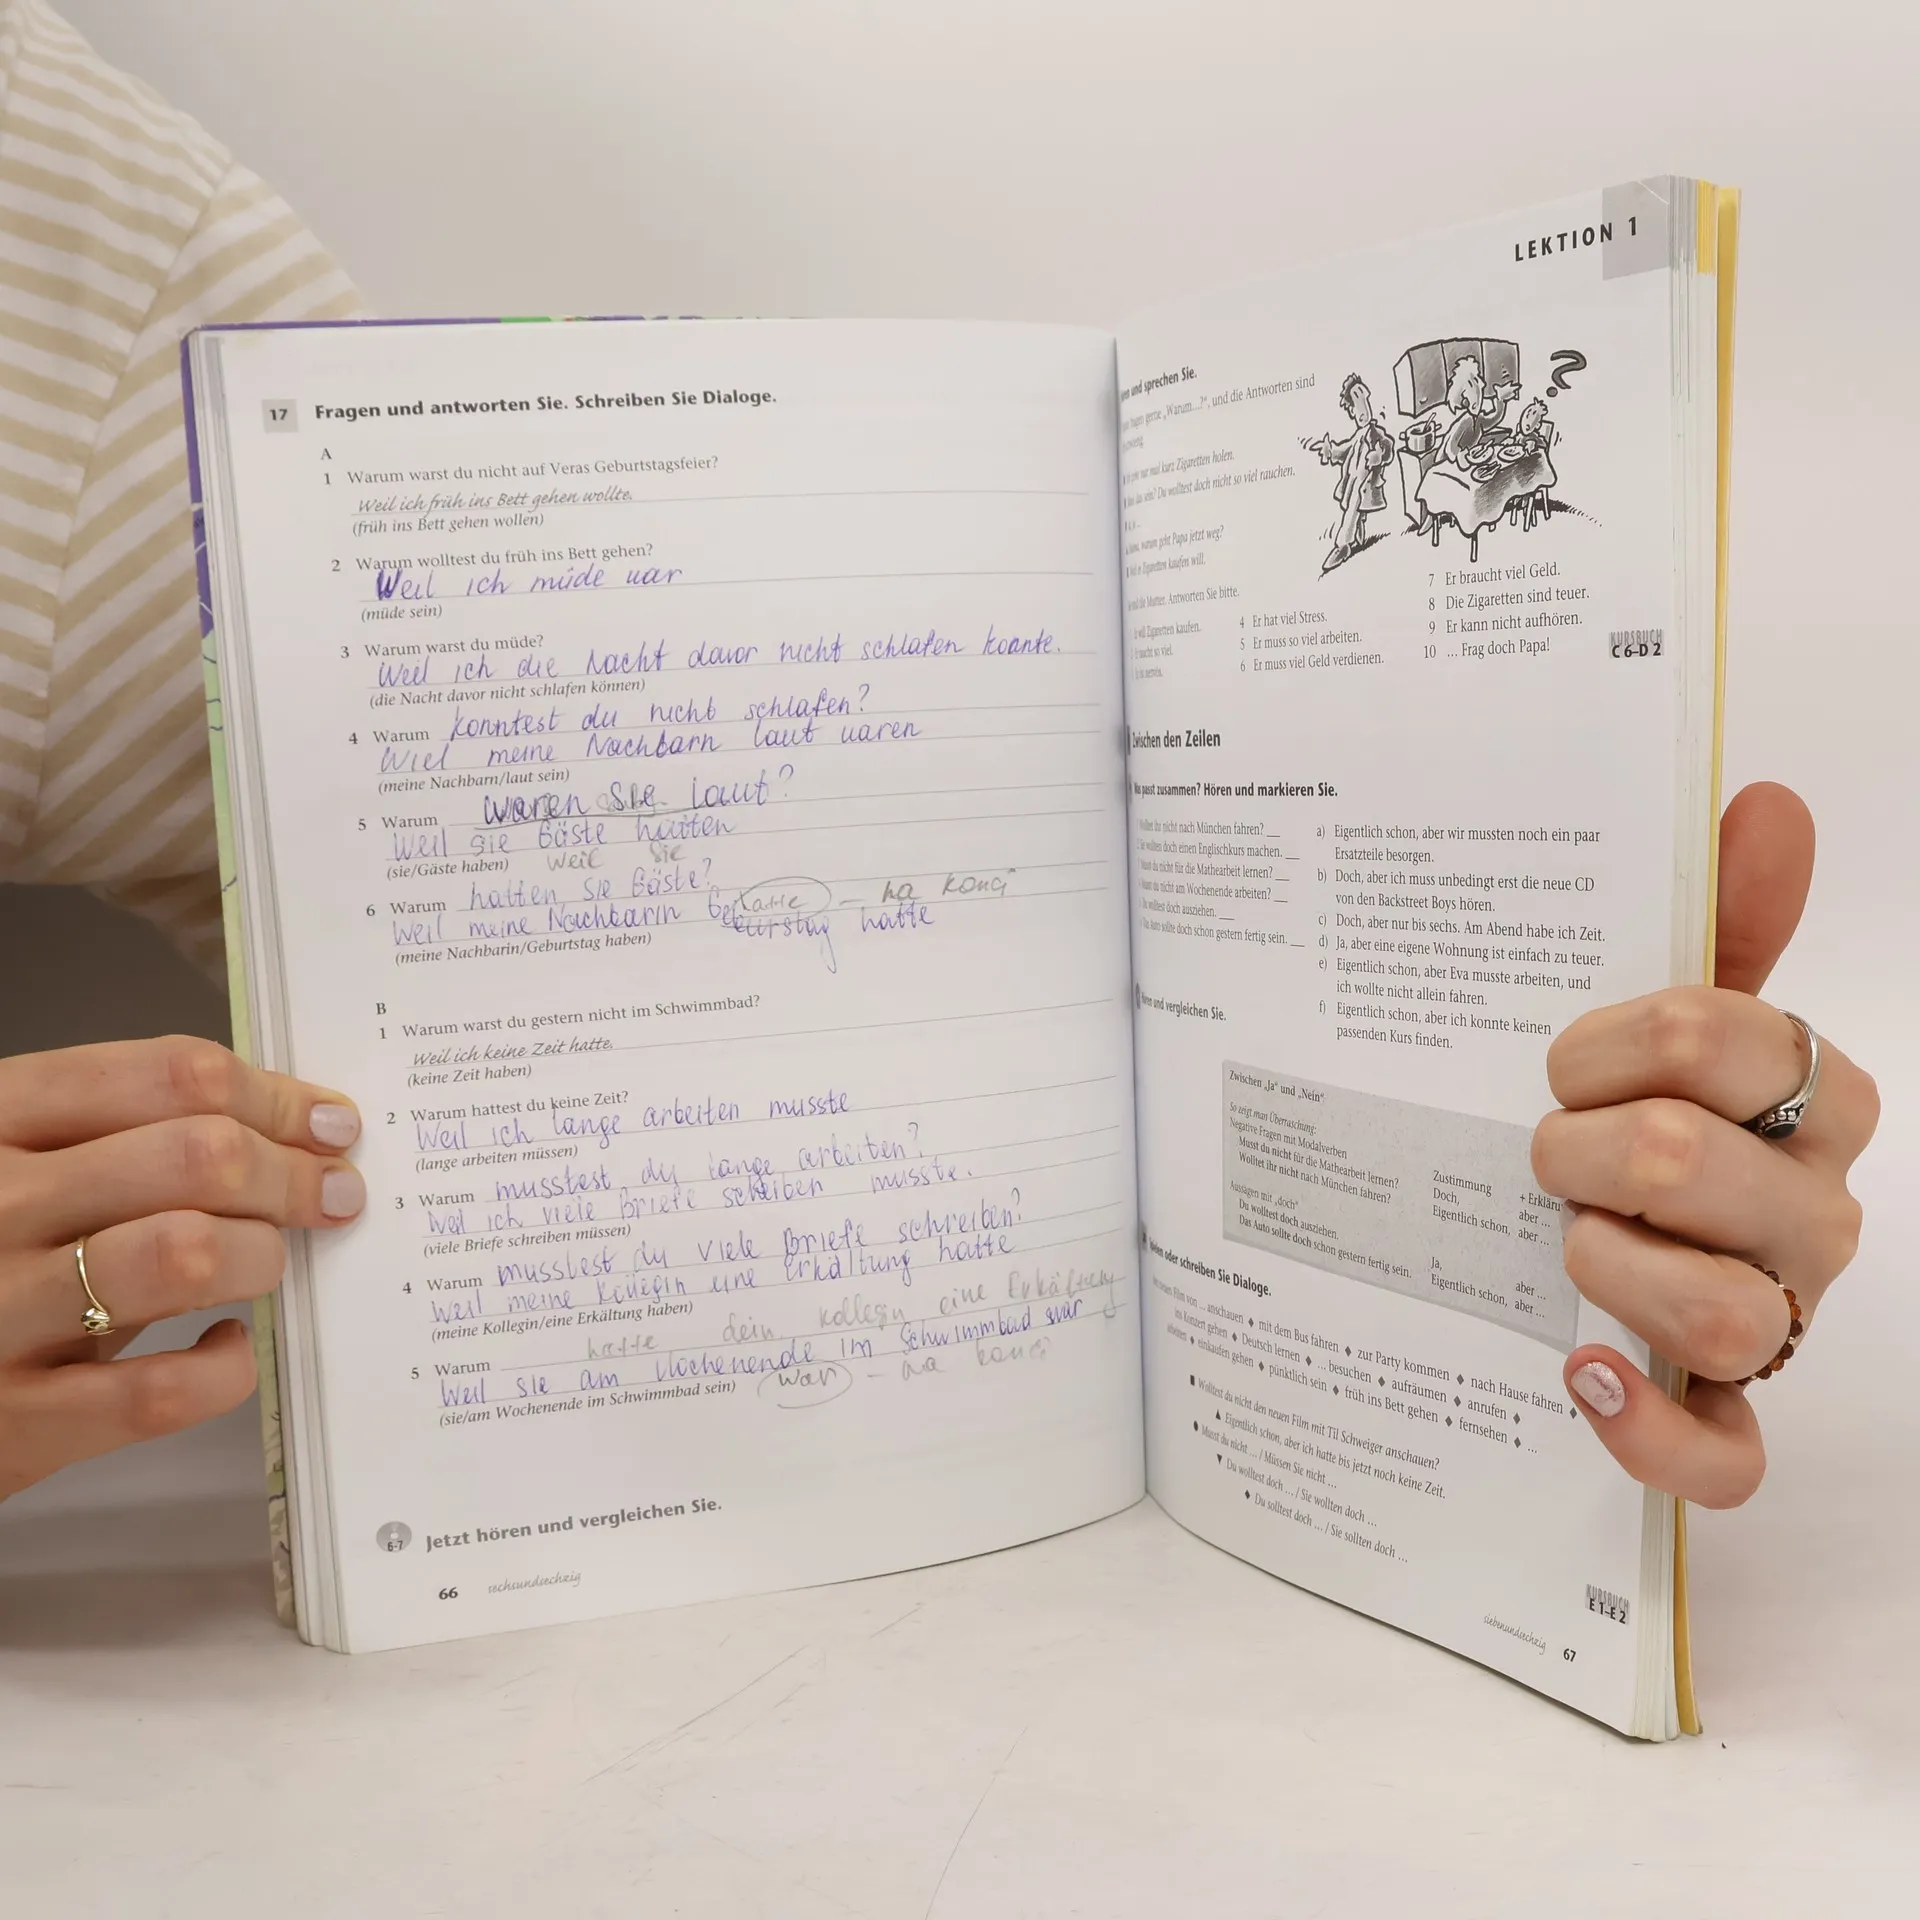 17 Fragen und antworten Sie. Schreiben Sie Dialoge.
A
1 Warum warst du nicht auf Veras Geburtstagsfeier?
Weil ich früh ins Bett gehen wollte.
(früh ins Bett gehen wollen)
2 Warum wolltest du früh ins Bett gehen?
Weil ich müde war
(müde sein)
3 Warum warst du müde?
Weil ich die Nacht davor nicht schlafen konnte.
(die Nacht davor nicht schlafen können)
4 Warum konntest du nicht schlafen?
Wiel meine Nachbarn laut waren
(meine Nachbarn/laut sein)
5 Warum waren Sie laut?
Weil sie Gäste hatten
(sie/Gäste haben) weil sie
6 Warum hatten Sie Gäste?
Weil meine Nachbarin hatte – na konci
hatte
(meine Nachbarin/Geburtstag haben)
B
1 Warum warst du gestern nicht im Schwimmbad?
Weil ich keine Zeit hatte.
(keine Zeit haben)
2 Warum hattest du keine Zeit?
Weil ich lange arbeiten musste
(lange arbeiten müssen)
3 Warum musstest du lange arbeiten?
Weil ich viele Briefe schreiben musste.
(viele Briefe schreiben müssen)
4 Warum musstest du viele Briefe schreiben?
Weil meine Kollegin eine Erkältung hatte
(meine Kollegin/eine Erkältung haben)
5 Warum hatte dein kollegin eine Erkältung
Weil sie am Wochenende im Schwimmbad war
(sie/am Wochenende im Schwimmbad sein) war – na konci
6-7 Jetzt hören und vergleichen Sie.
66 sechsundsechzig
LEKTION 1
und sprechen Sie.
gerne „Warum...?", und die Antworten sind
mal kurz Zigaretten holen.
sein? Du wolltest doch nicht so viel rauchen.
warum geht Papa jetzt weg?
Zigaretten kaufen will.
die Mutter. Antworten Sie bitte.
will Zigaretten kaufen.
so viel.
4 Er hat viel Stress.
5 Er muss so viel arbeiten.
6 Er muss viel Geld verdienen.
7 Er braucht viel Geld.
8 Die Zigaretten sind teuer.
9 Er kann nicht aufhören.
10 ... Frag doch Papa!
KURSBUCH
C 6–D 2
Zwischen den Zeilen
Was passt zusammen? Hören und markieren Sie.
Wolltet ihr nicht nach München fahren? __
Sie wollten doch einen Englischkurs machen. __
Musst du nicht für die Mathearbeit lernen? __
du nicht am Wochenende arbeiten? __
Du wolltest doch ausziehen. __
Das Auto sollte doch schon gestern fertig sein. __
a) Eigentlich schon, aber wir mussten noch ein paar
Ersatzteile besorgen.
b) Doch, aber ich muss unbedingt erst die neue CD
von den Backstreet Boys hören.
c) Doch, aber nur bis sechs. Am Abend habe ich Zeit.
d) Ja, aber eine eigene Wohnung ist einfach zu teuer.
e) Eigentlich schon, aber Eva musste arbeiten, und
ich wollte nicht allein fahren.
f) Eigentlich schon, aber ich konnte keinen
passenden Kurs finden.
Hören und vergleichen Sie.
Zwischen „Ja" und „Nein"
So zeigt man Überraschung:
Negative Fragen mit Modalverben
Musst du nicht für die Mathearbeit lernen?
Wolltet ihr nicht nach München fahren?
Aussagen mit „doch"
Du wolltest doch ausziehen.
Das Auto sollte doch schon gestern fertig sein.
Zustimmung + Erkläru
Doch, aber ...
Eigentlich schon, aber ...
Ja, aber ...
Eigentlich schon, aber ...
oder schreiben Sie Dialoge.
Film von ... anschauen ♦ mit dem Bus fahren ♦ zur Party kommen ♦ nach Hause fahren ♦
ins Konzert gehen ♦ Deutsch lernen ♦ ... besuchen ♦ aufräumen ♦ anrufen ♦
arbeiten ♦ einkaufen gehen ♦ pünktlich sein ♦ früh ins Bett gehen ♦ fernsehen ♦ ...
■ Wolltest du nicht den neuen Film mit Til Schweiger anschauen?
▲ Eigentlich schon, aber ich hatte bis jetzt noch keine Zeit.
● Musst du nicht ... / Müssen Sie nicht ...
▼ Du wolltest doch ... / Sie wollten doch ...
♦ Du solltest doch ... / Sie sollten doch ...
KURSBUCH
E 1–E 2
siebenundsechzig 67